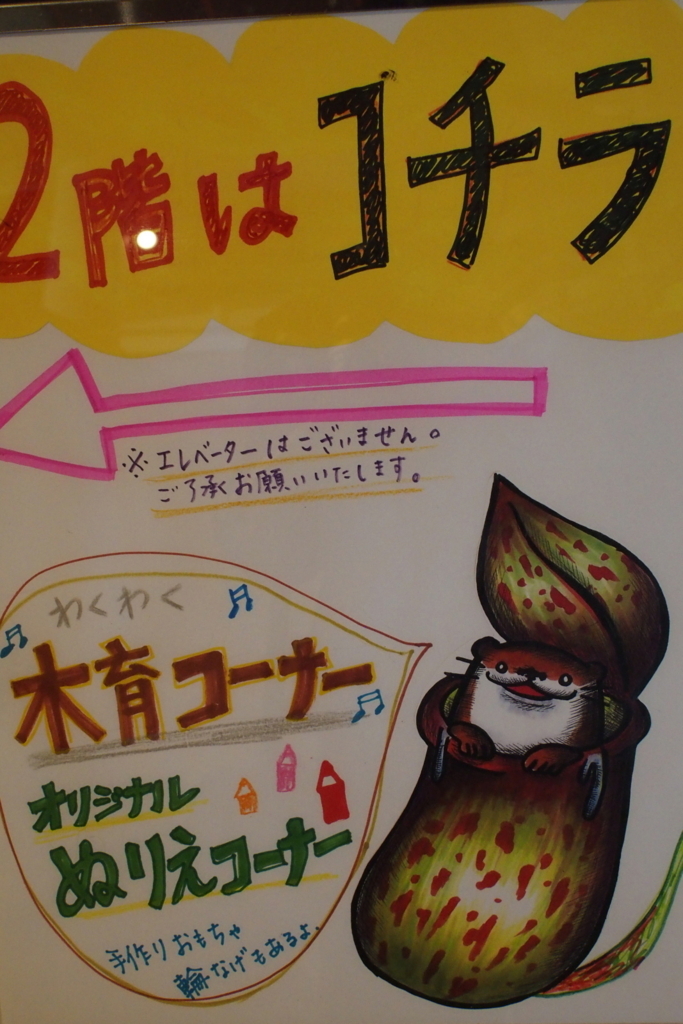 2階はコチラ
※エレベーターはございません。
ご了承くお願いいたします。
わくわく
木育コーナー
オリジナル
ぬりえコーナー
手作りおもちゃ
輪なげもあるよ.